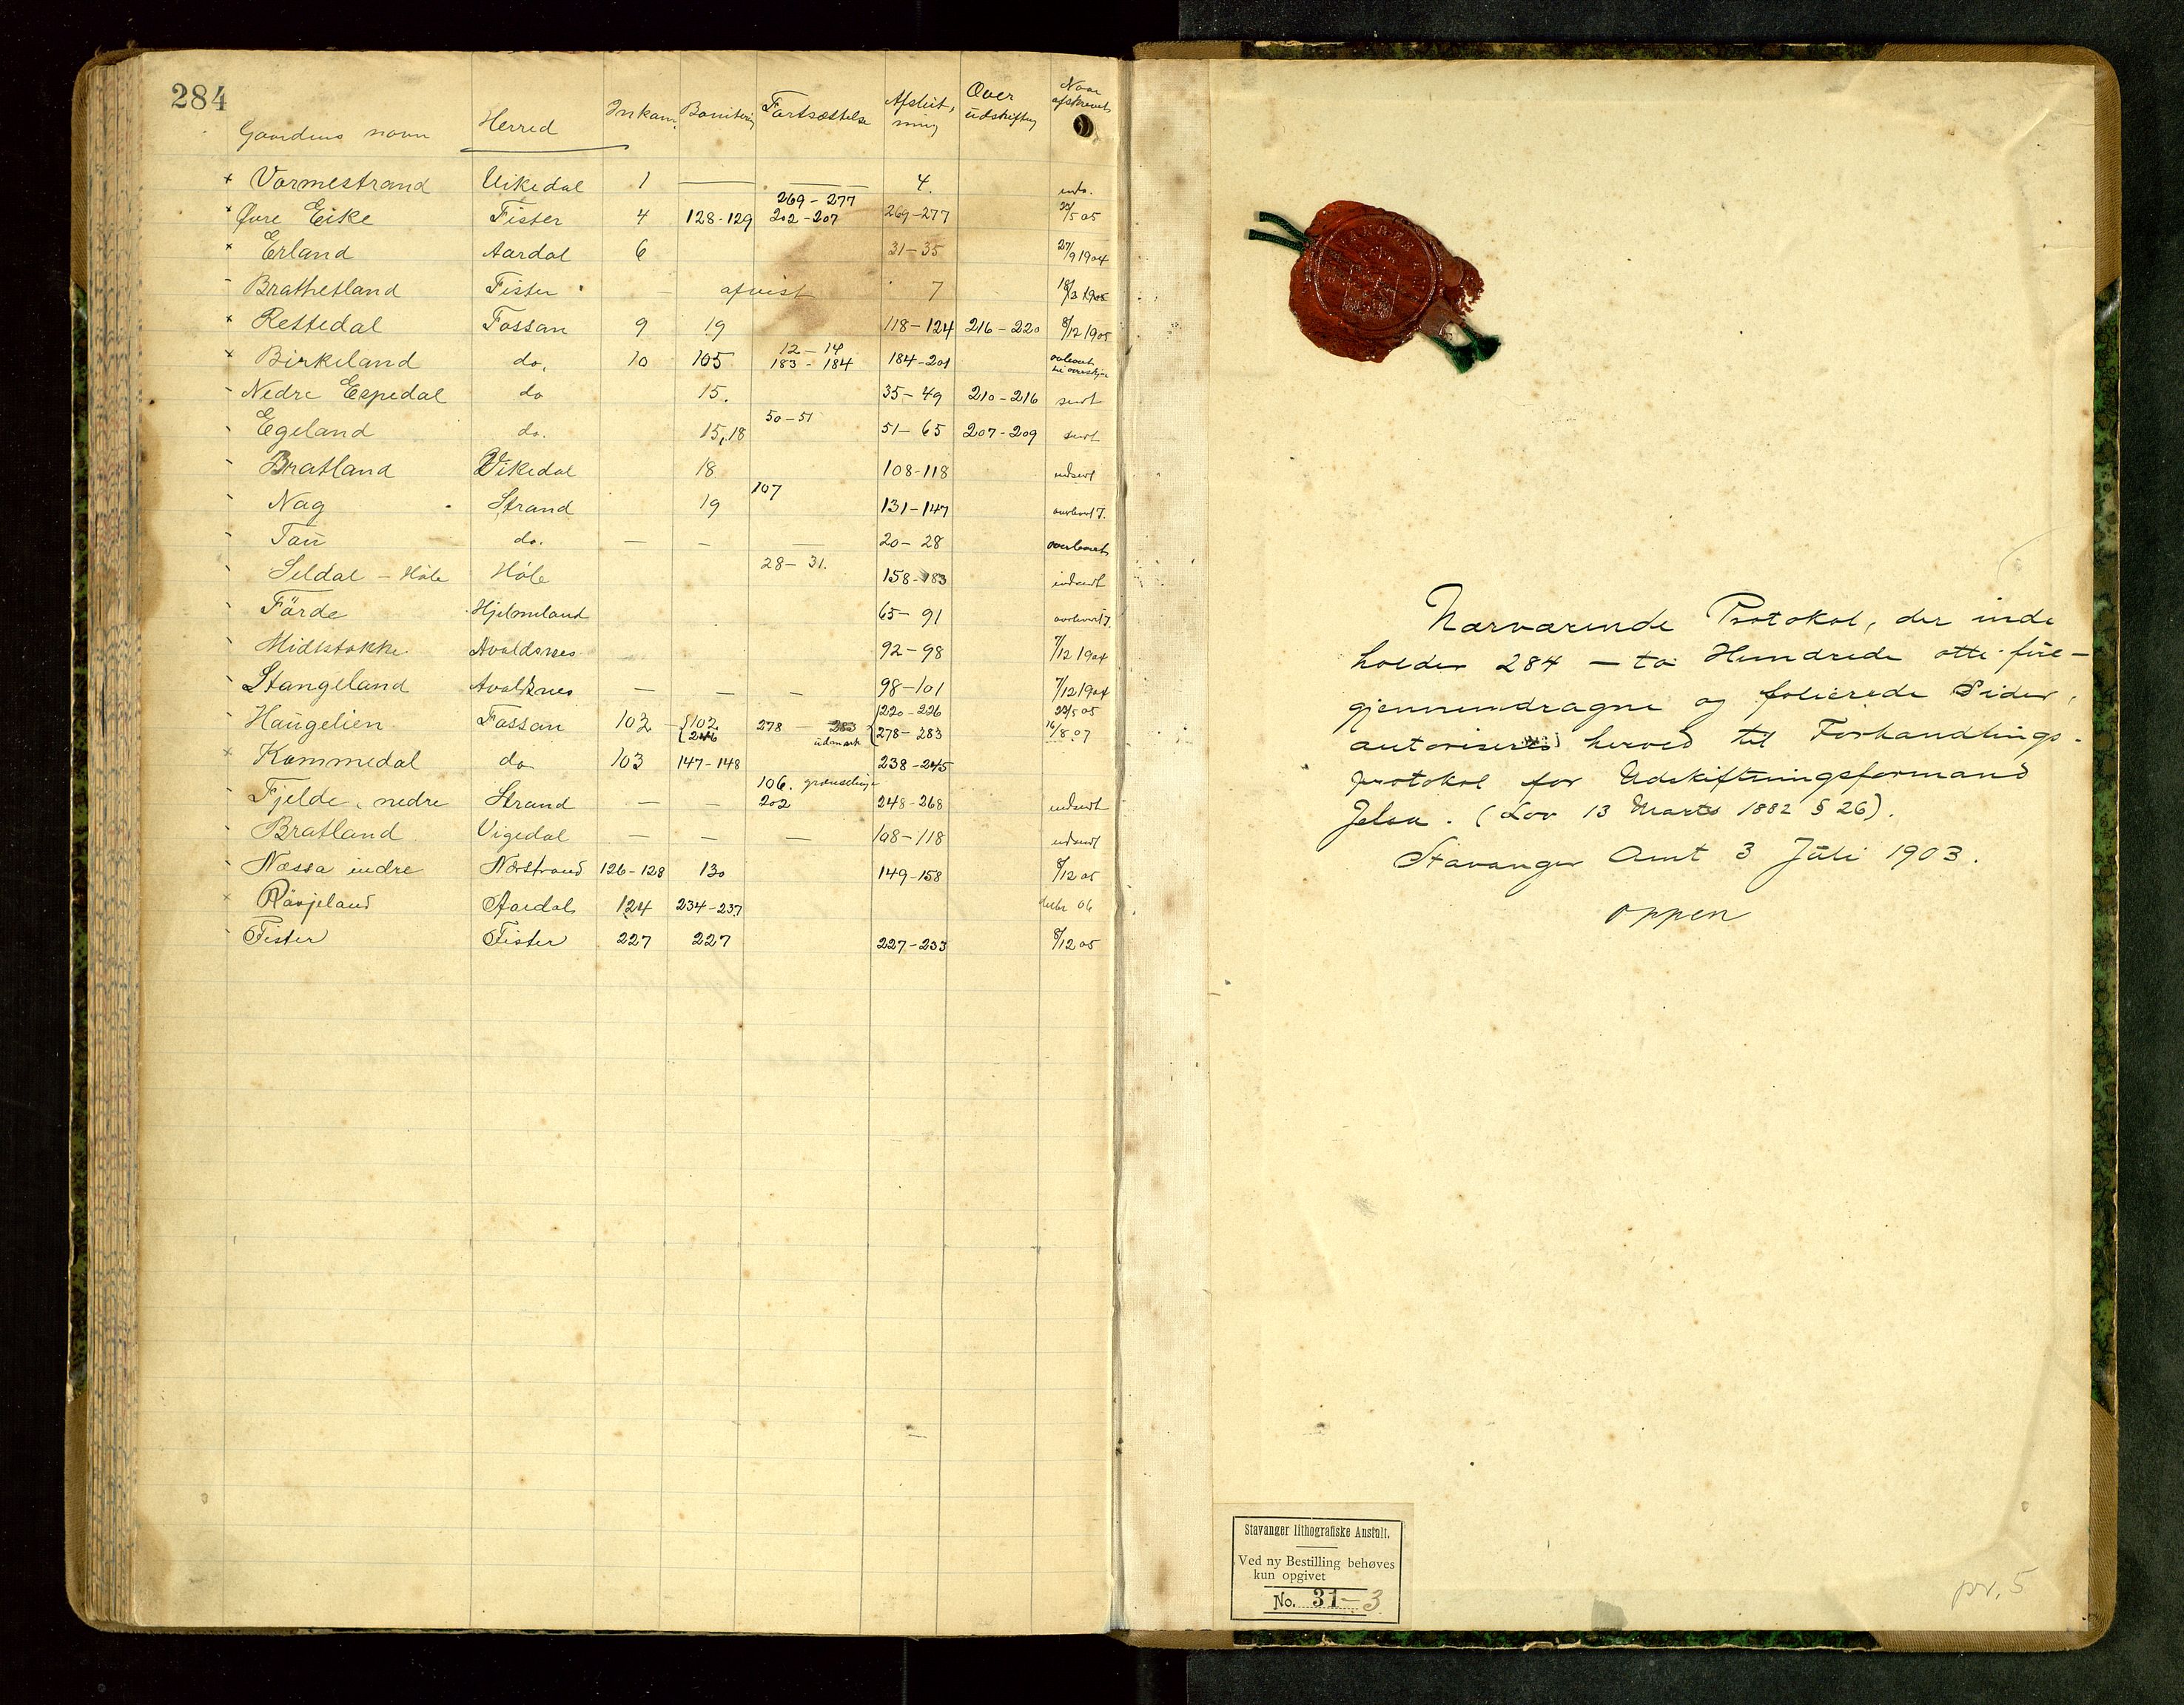 284
Gaardens navn Herred Inkam. Bonitering Fortsættelse Afslut,ning Over udskiftning Naar afskrevet
× Vormestrand Vikedal 1 — — 4. inds.
× Øvre Eike Fister 4 128-129 269-277 202-207 269-277 22/5 05
× Erland Aardal 6 31-35 27/9 1904
- Brathetland Fister — afvist 7 18/3 1905
× Rettedal Fossan 9 19 118-124 216-220 8/12 1905
× Birkeland do. 10 105 12-14 183-184 184-201 overleveret
- Nedre Espedal do 15. 35-49 210-216 sendt
- Egeland do. 15,18 50-51 51-65 207-209 sendt
- Bratland Vikedal 18 108-118 indsendt
- Nag Strand 19 107 131-147
- Tau do. — — — 20-28 overleveret
- Seldal - Høle Høle 28-31. 158-183 indsendt
- Förde Hjelmeland 65-91
- Midtstokke Avaldsnes 92-98 7/12 1904
- Stangeland Avaldsnes — — — 98-101 7/12 1904
- Haugelien Fossan 102 {102 246 278 - 283 udmark {220-226 278-283 22/5 05 16/8 07
× Kommedal do 103 147-148 238-245
- Fjelde, nedre Strand — — 106. grænselinje 202 248-268 indsendt
- Bratland Vigedal — — — 108-118 indsendt
- Næssa indre Nerstrand 126-128 130 149-158 8/12 05
× Råvjeland Aardal 124 234-237 decbr 06
- Fister Fister 227 227 227-233 8/12 05
Nærværende Protokol, der inde
holder 284 - to Hundrede otte fire -
gjennemdragne og folierede Sider,
autoriseres herved til Forhandlings-
protokol for Udskiftningsformand
Jelsa. (Lov 13 Marts 1882 § 26).
Stavanger Amt 3 Juli 1903.
Oppen
Stavanger lithografiske Anstalt.
Ved ny Bestilling behøves
kun opgivet
No. 31-3
pr. 5